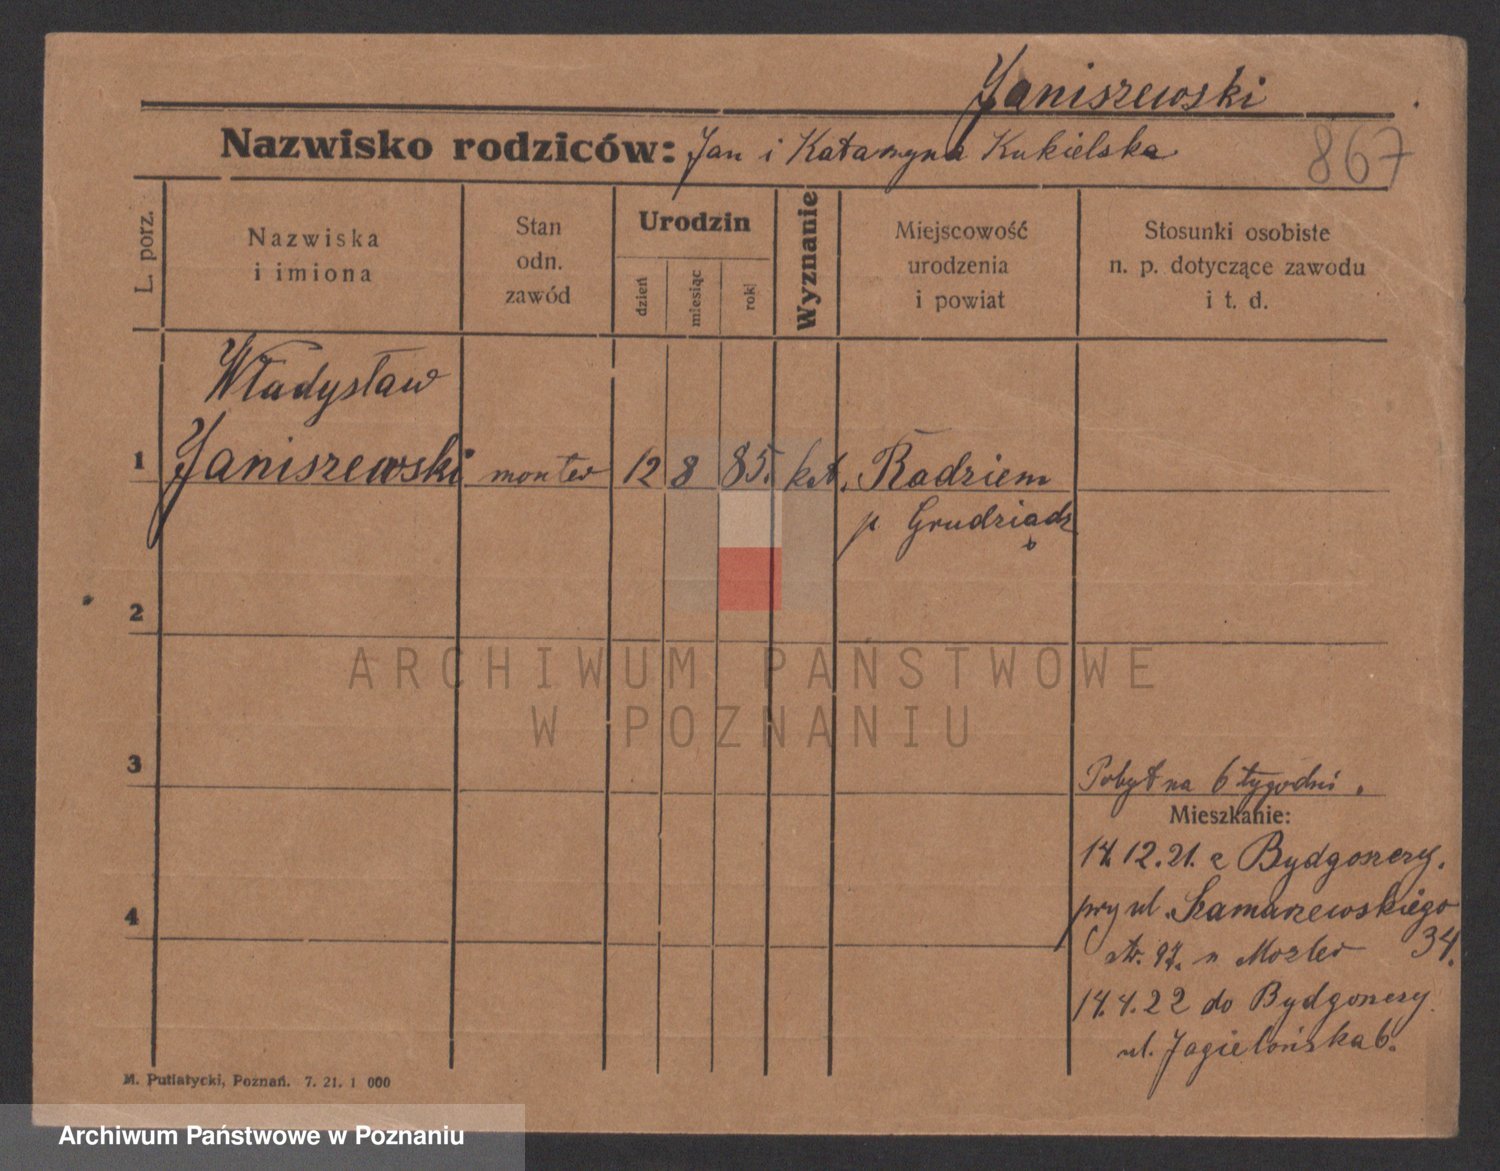 Janiszewski
Nazwisko rodziców: Jan i Katarzyna Kukielska
867
L. porz.
Nazwiska
i imiona
Stan
odn.
zawód
Urodzin
dzień
miesiąc
rok
Wyznanie
Miejscowość
urodzenia
i powiat
Stosunki osobiste
n. p. dotyczące zawodu
i t. d.
Władysław
1 Janiszewski monter 12 8 85. kat. Radziem
p Grudziądz
2
ARCHIWUM PAŃSTWOWE
W POZNANIU
3
Pobyt na 6 tygodni.
Mieszkanie:
14.12.21. z Bydgoszczy.
przy ul. Szamarzewskiego
34.
4
14.4.22 do Bydgoszczy
ul. Jagielońska 6.
M. Putiatycki, Poznań. 7. 21. 1 000
Archiwum Państwowe w Poznaniu